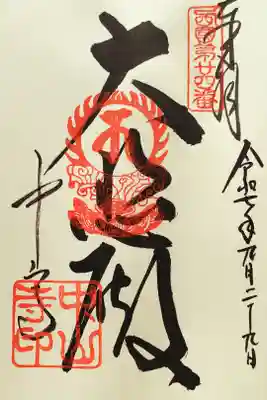 奉拝
西国第廿四番
令和七年 月二十九日
大悲殿
中山寺
中山寺印